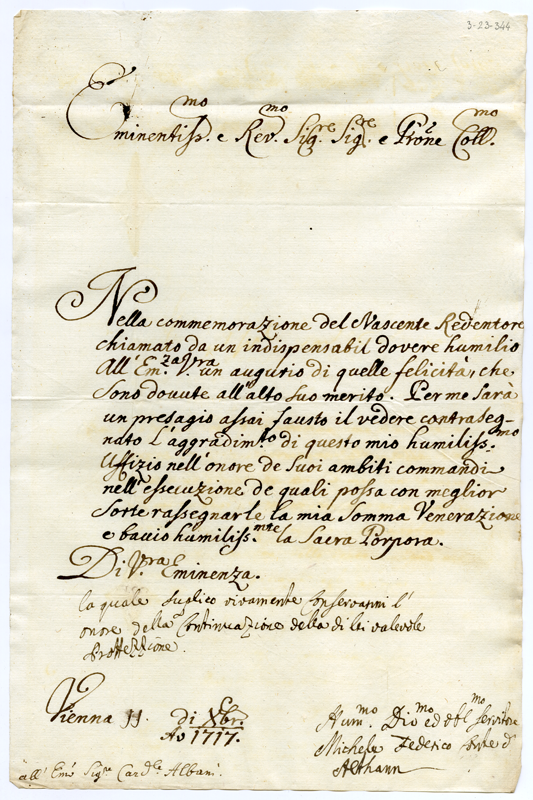 3-23-344
Eminentiss.mo e Rev.mo Sig.re Sig.re e Prōne Coll.mo
Nella commemorazione del Nascente Redentore
chiamato da un indispensabil dovere humilio
All' Em.za V.ra un augurio di quelle felicità, che
sono dovute all'alto suo merito. Per me sarà
un presagio assai fausto il vedere contraseg-
nato l'aggradim.to di questo mio humiliss.mo
Uffizio nell'onore de suoi ambiti commandi
nell'essecuzione de quali possa con meglior
sorte rassegnarle la mia somma Venerazione
e bacio humiliss.mte la Sacra Porpora.
Di V.ra Eminenza.
la quale suplico vivamente conservarmi l'
onore della continuazione della di lei valevole
Prottezzione.
Vienna 11. di Xbr.e
Ao 1717.
Hum.mo Div.mo ed obl.mo servitore
Michele Federico Conte d'
Althann
all' Emo Sigre Card.le Albani.